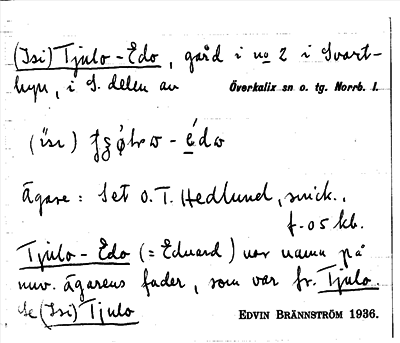 (Isi) Tjulo-Edo, gård i no 2 i Svart-
byn, i S. delen av Överkalix sn o. tg. Norrb. l.
(isi)
Ägare: Set O. T. Hedlund, snick.,
f. 05 kb.
Tjulo-Edo (= Eduard) var namn på
nuv. ägarens fader, som var fr. Tjulo.
Se (Isi) Tjulo
EDVIN BRÄNNSTRÖM 1936.